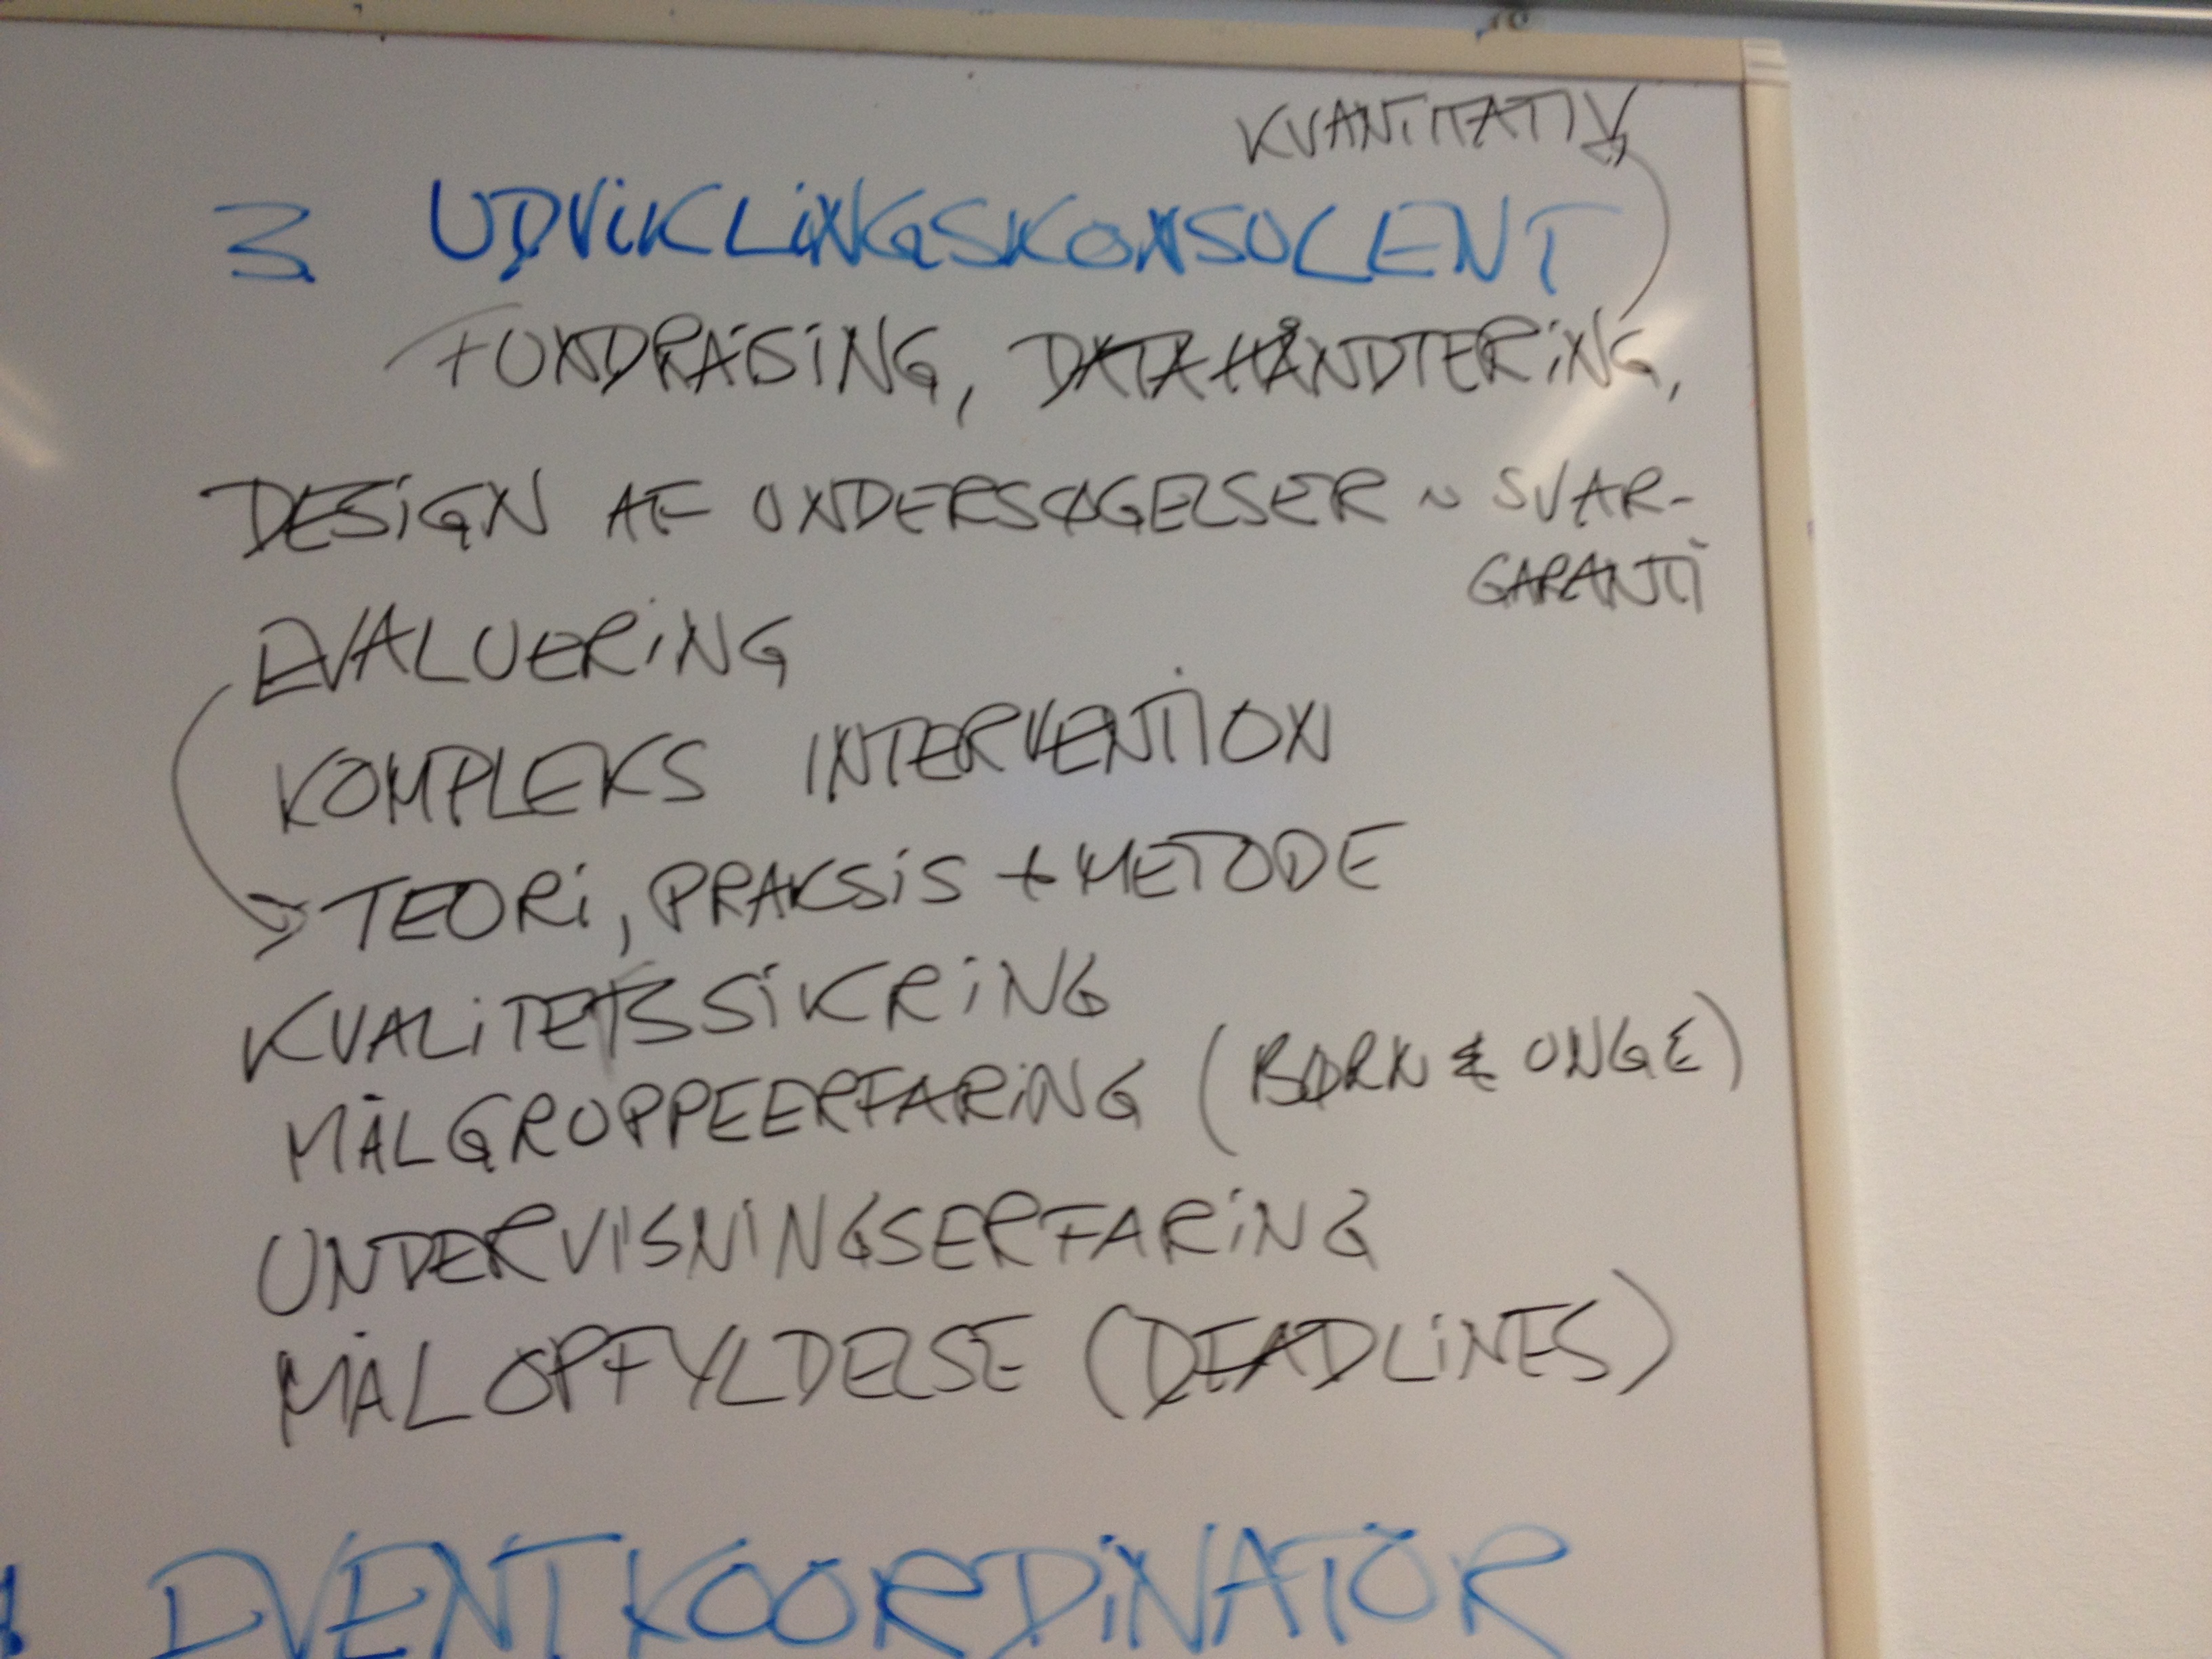 KVANTITATIV
3 UDVIKLINGSKONSULENT
FUNDRAISING, DATAHÅNDTERING,
DESIGN AF UNDERSØGELSER ~ SVAR-
GARANTI
EVALUERING
KOMPLEKS INTERVENTION
TEORI, PRAKSIS + METODE
KVALITETSSIKRING
MÅLGRUPPEERFARING (BØRN & UNGE)
UNDERVISNINGSERFARING
MÅLOPFYLDELSE (DEADLINES)
EVENTKOORDINATOR